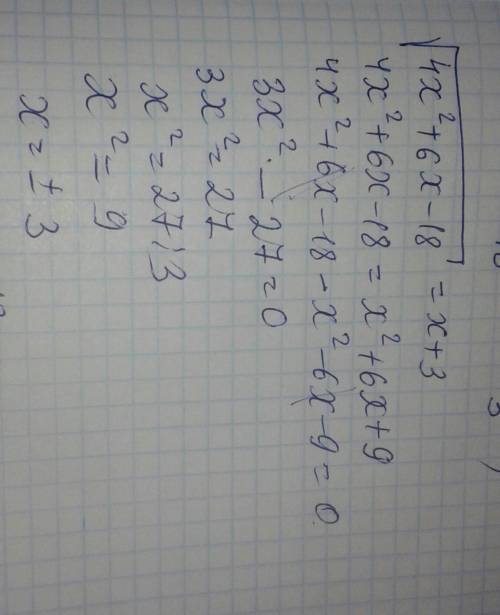 √4x²+6x-18 = x+3
4x²+6x-18 = x²+6x+9
4x²+6x-18-x²-6x-9=0
3x²-27=0
3x²=27
x²=27:3
x²=9
x=±3